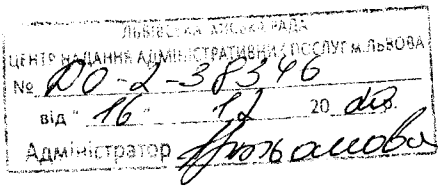 ЛЬВІВСЬКА МІСЬКА РАДА
ЦЕНТР НАДАННЯ АДМІНІСТРАТИВНИХ ПОСЛУГ м.ЛЬВОВА
№ ДО-2-38346
від "16" 12 20 р.
Адміністратор